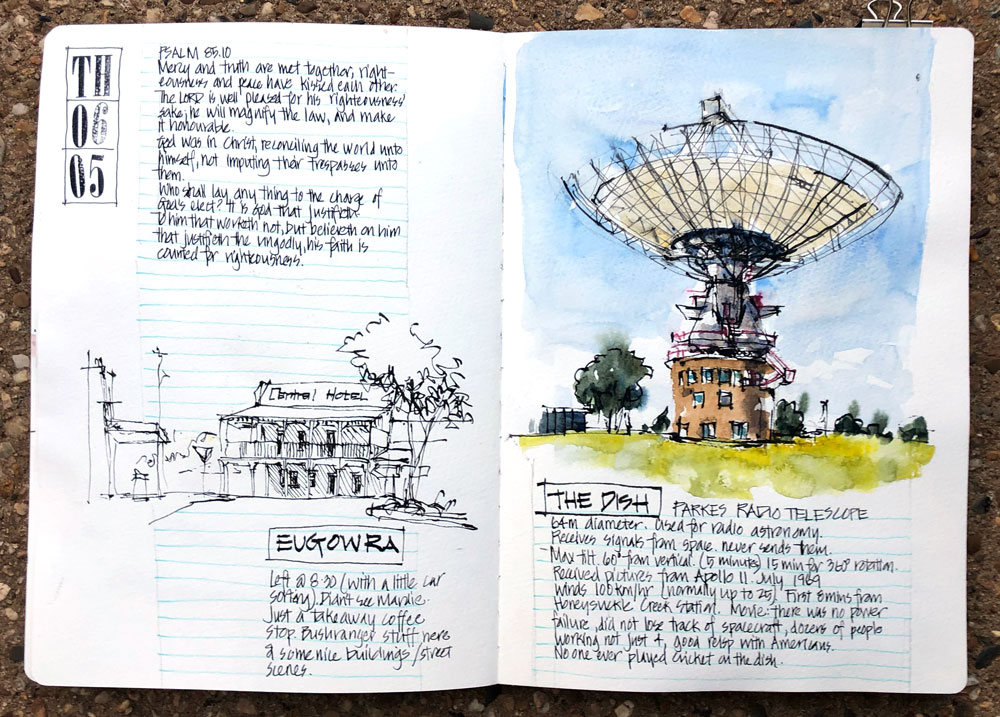 TH
06
05
PSALM 85.10
Mercy and truth are met together, right-
eousness and peace have kissed each other.
The LORD is well pleased for his righteousness'
sake; he will magnify the law, and make
it honourable.
God was in Christ, reconciling the world unto
himself, not imputing their trespasses unto
them.
Who shall lay any thing to the charge of
God's elect? It is God that justifieth.
To him that worketh not, but believeth on him
that justifieth the ungodly, his faith is
counted for righteousness.
Central HOTEL
EUGOWRA
Left @ 8:30 (with a little car
). Didn't see Mardie.
Just a takeaway coffee
stop. Bushranger stuff here
& some nice buildings/street
scenes.
THE DISH PARKES RADIO TELESCOPE
64m diameter. Used for radio astronomy.
Receives signals from space. never sends them.
Max tilt. 60° from vertical. (5 minutes) 15 min for 360° rotation.
Received pictures from Apollo 11. July 1969
Winds 100km/hr (normally up to 25) First 8mins from
Honeysuckle Creek Station. Movie: there was no power
failure, did not lose track of spacecraft, dozens of people
working not just 4, good relsp with Americans.
No one ever played cricket on the dish.